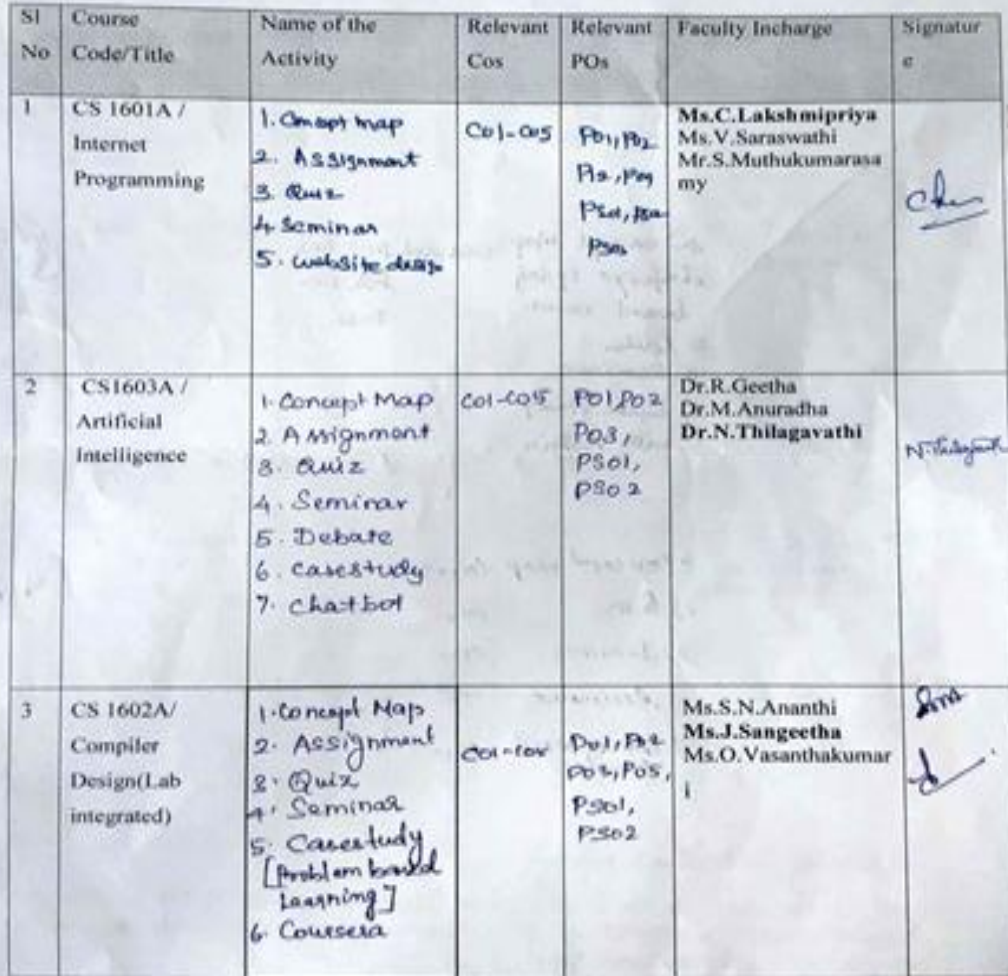 Sl No
Course Code/Title
Name of the Activity
Relevant Cos
Relevant POs
Faculty Incharge
Signatur e
1
CS 1601A /
Internet
Programming
1. Concept map
2. Assignment
3. Quiz
4. Seminar
5. website design
CO1-CO5
PO1, PO2
PSO1,
Ms.C.Lakshmipriya
Ms.V.Saraswathi
Mr.S.Muthukumarasa
my
2
CS1603A /
Artificial
Intelligence
1. Concept Map
2. Assignment
3. Quiz
4. Seminar
5. Debate
6. Casestudy
7. Chatbot
CO1-CO5
PO1,PO2
PO3,
PSO1,
PSO2
Dr.R.Geetha
Dr.M.Anuradha
Dr.N.Thilagavathi
3
CS 1602A/
Compiler
Design(Lab
integrated)
1. Concept Map
2. Assignment
3. Quiz
4. Seminar
5. Casestudy
[Problem based
Learning]
6. Coursera
CO1-CO5
PO1, PO2
PO3, PO5,
PSO1,
PSO2
Ms.S.N.Ananthi
Ms.J.Sangeetha
Ms.O.Vasanthakumar
i